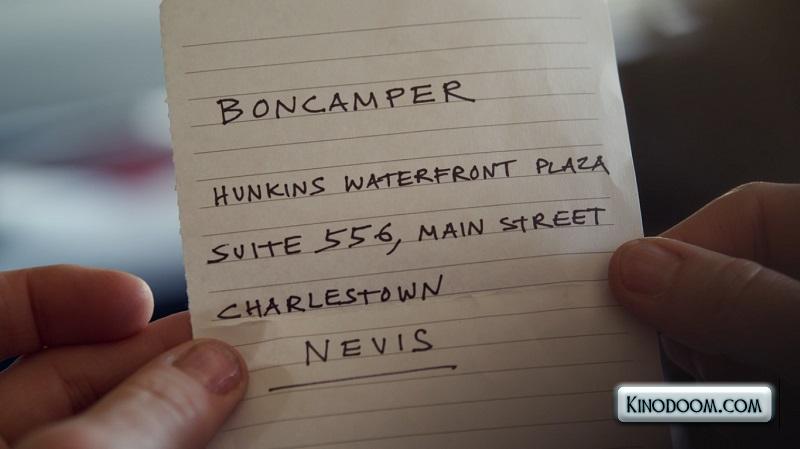 BONCAMPER
HUNKINS WATERFRONT PLAZA
SUITE 556, MAIN STREET
CHARLESTOWN
NEVIS
KINODOOM.COM